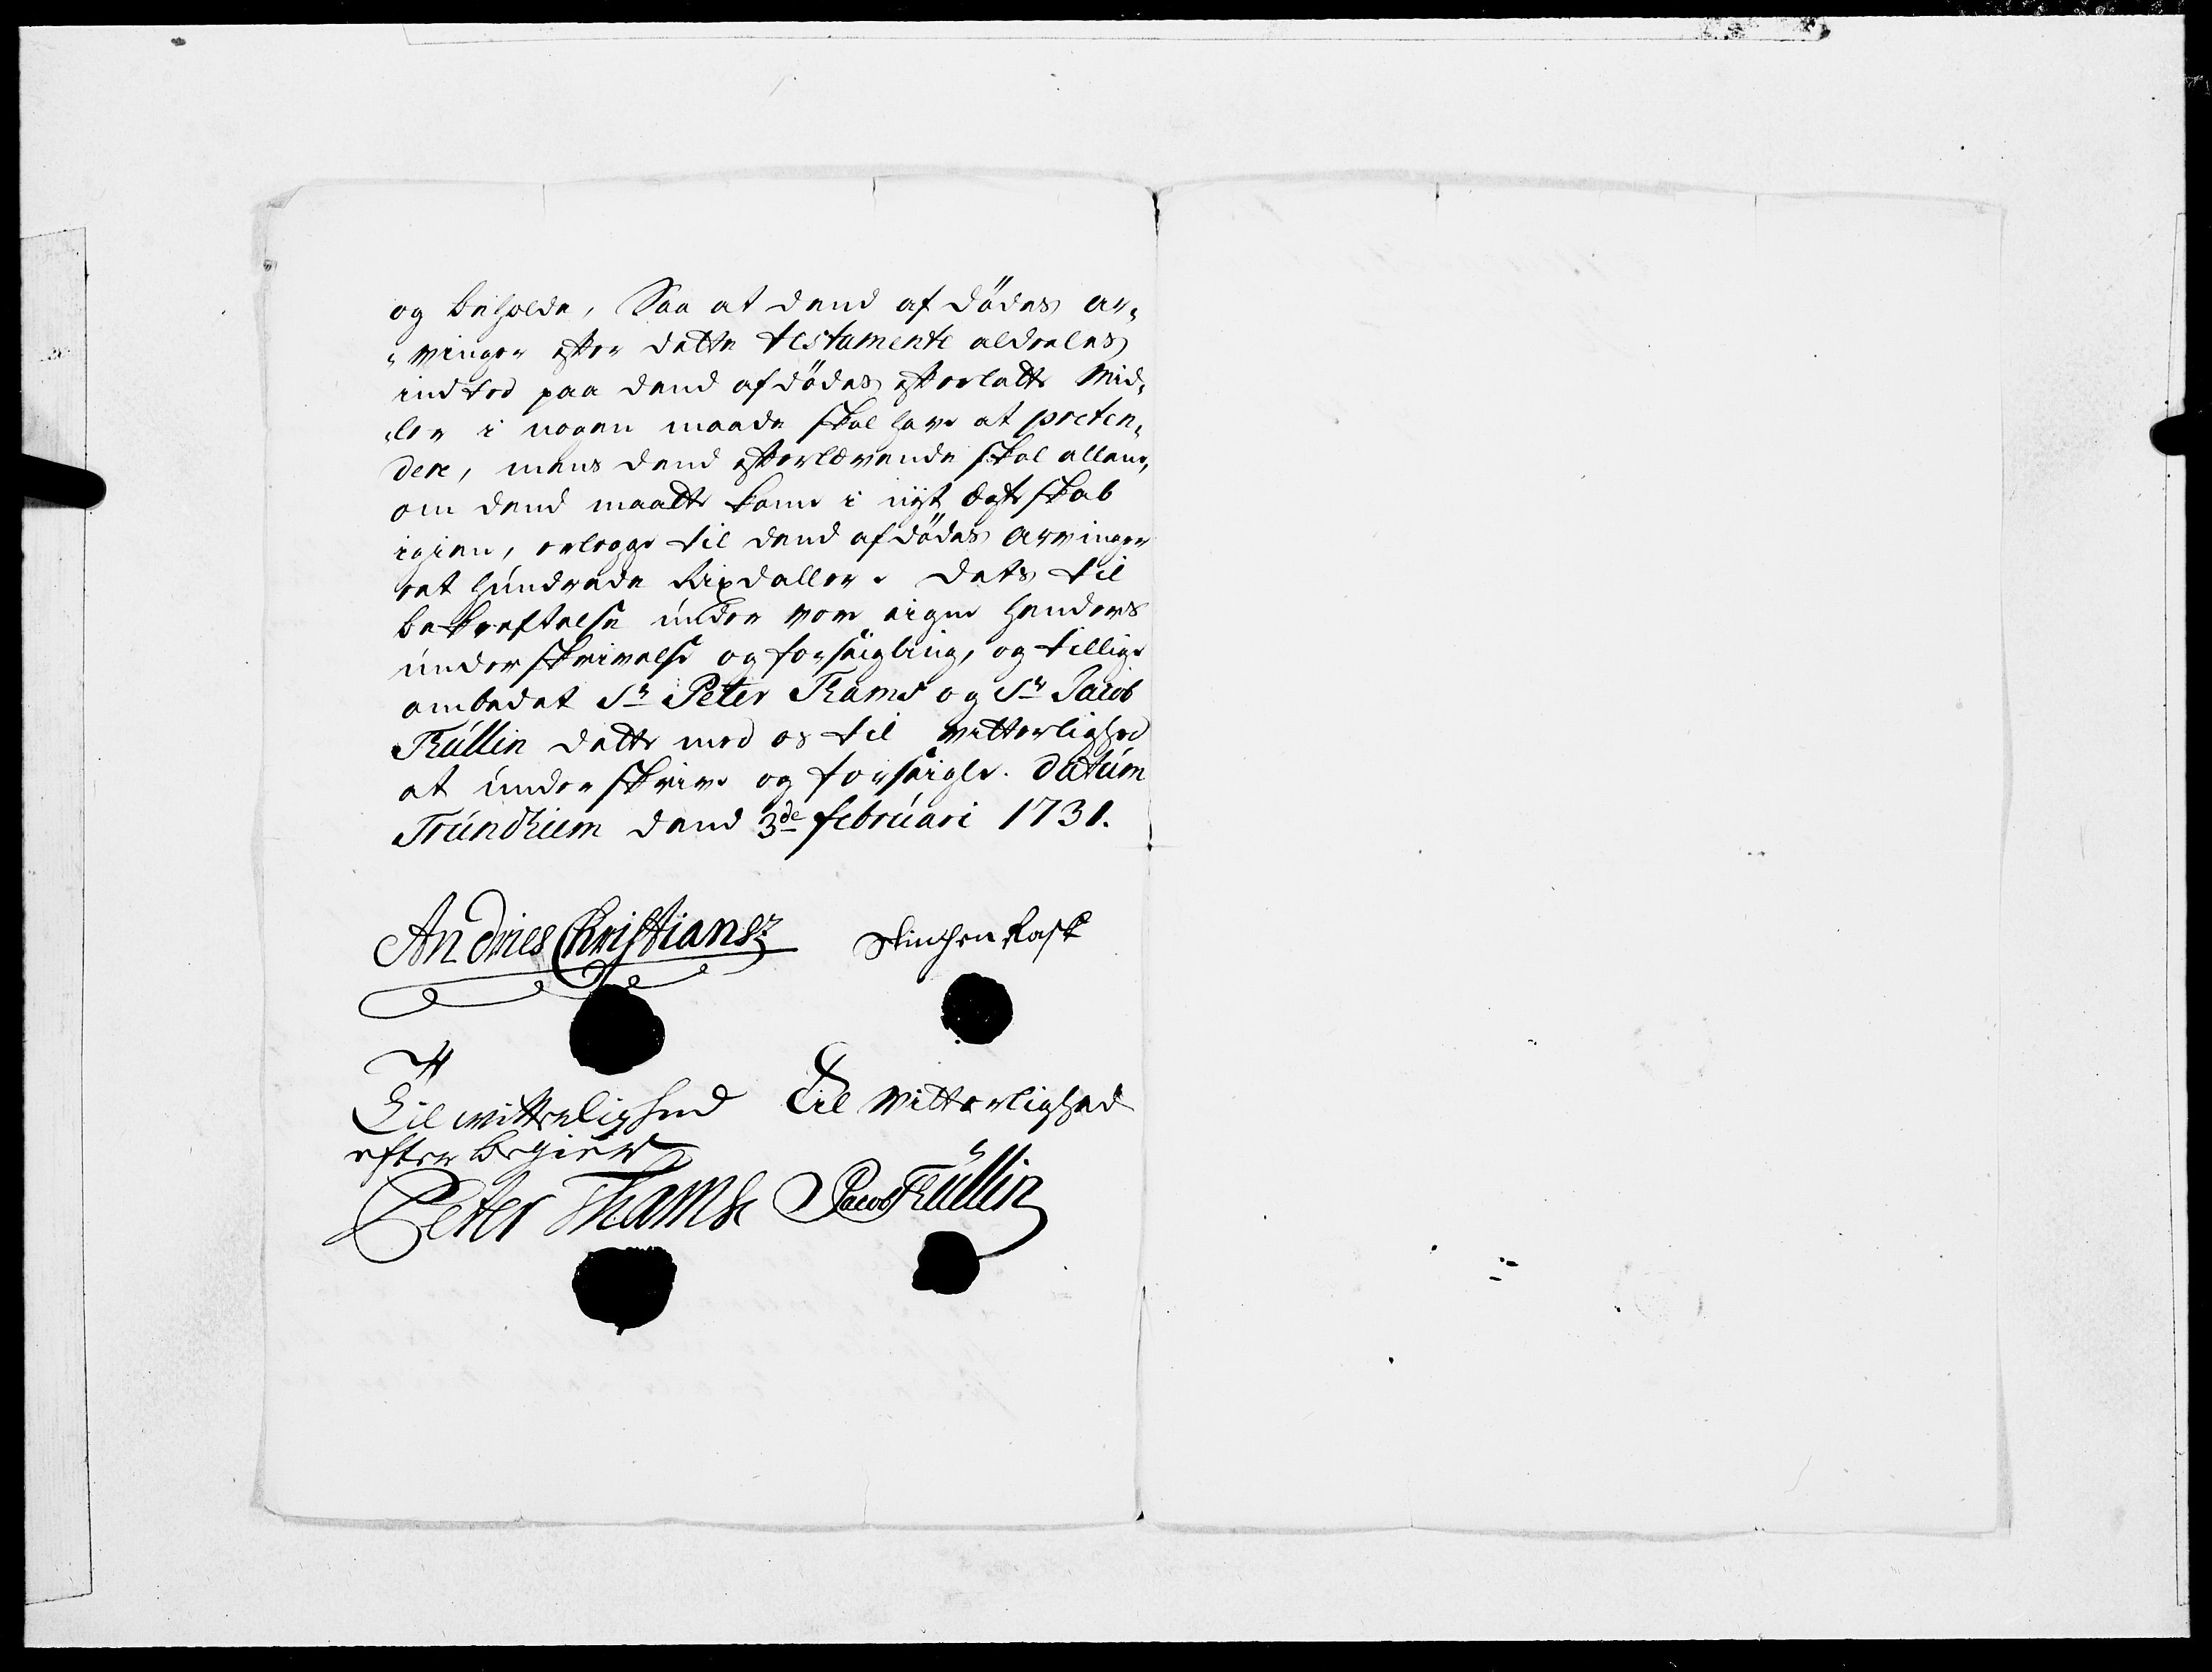 og beholde, Saa at dend af dödes ar„
„vinger efter dette testamente aldeeles
indted paa dend afdödes efterladte Mid„
„ler i nogen maade skal have at preten„
dere, mens dend efterlevende skal allene,
om dend maatte komme i nyt Egteskab
igien, erlegge til dend afdödes arvinger
eet hundrede Rixdaller. Dets til
bekreftelse under vore eigne henders
underskrivelse og forseigling, og tillige
ombedet Sr Peter Thams og Sr Jacob
Thüllin dette med os til vitterlighed
at underskrive og forseigle. Datum
Trundhiem dend 3de februari 1731.
Andries Christiansz: Rask
Til witterlighed Til Vitterlighed
efter begier
Peter Thams Jacob Thüllin